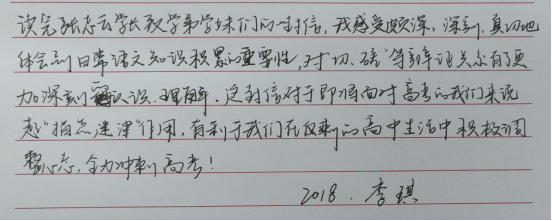 读完张志云学长致学弟学妹们的一封信，我感受颇深，深刻、真切地
体会到日常语文知识积累的重要性，对“切、磋”等刻辛证关系有了更
加深刻认识、理解。这封信对于即将面对高考的我们来说
起“指点迷津”作用，有利于我们在仅剩的高中生活中积极调
整心态，全力冲刺高考！
2018. 李琪